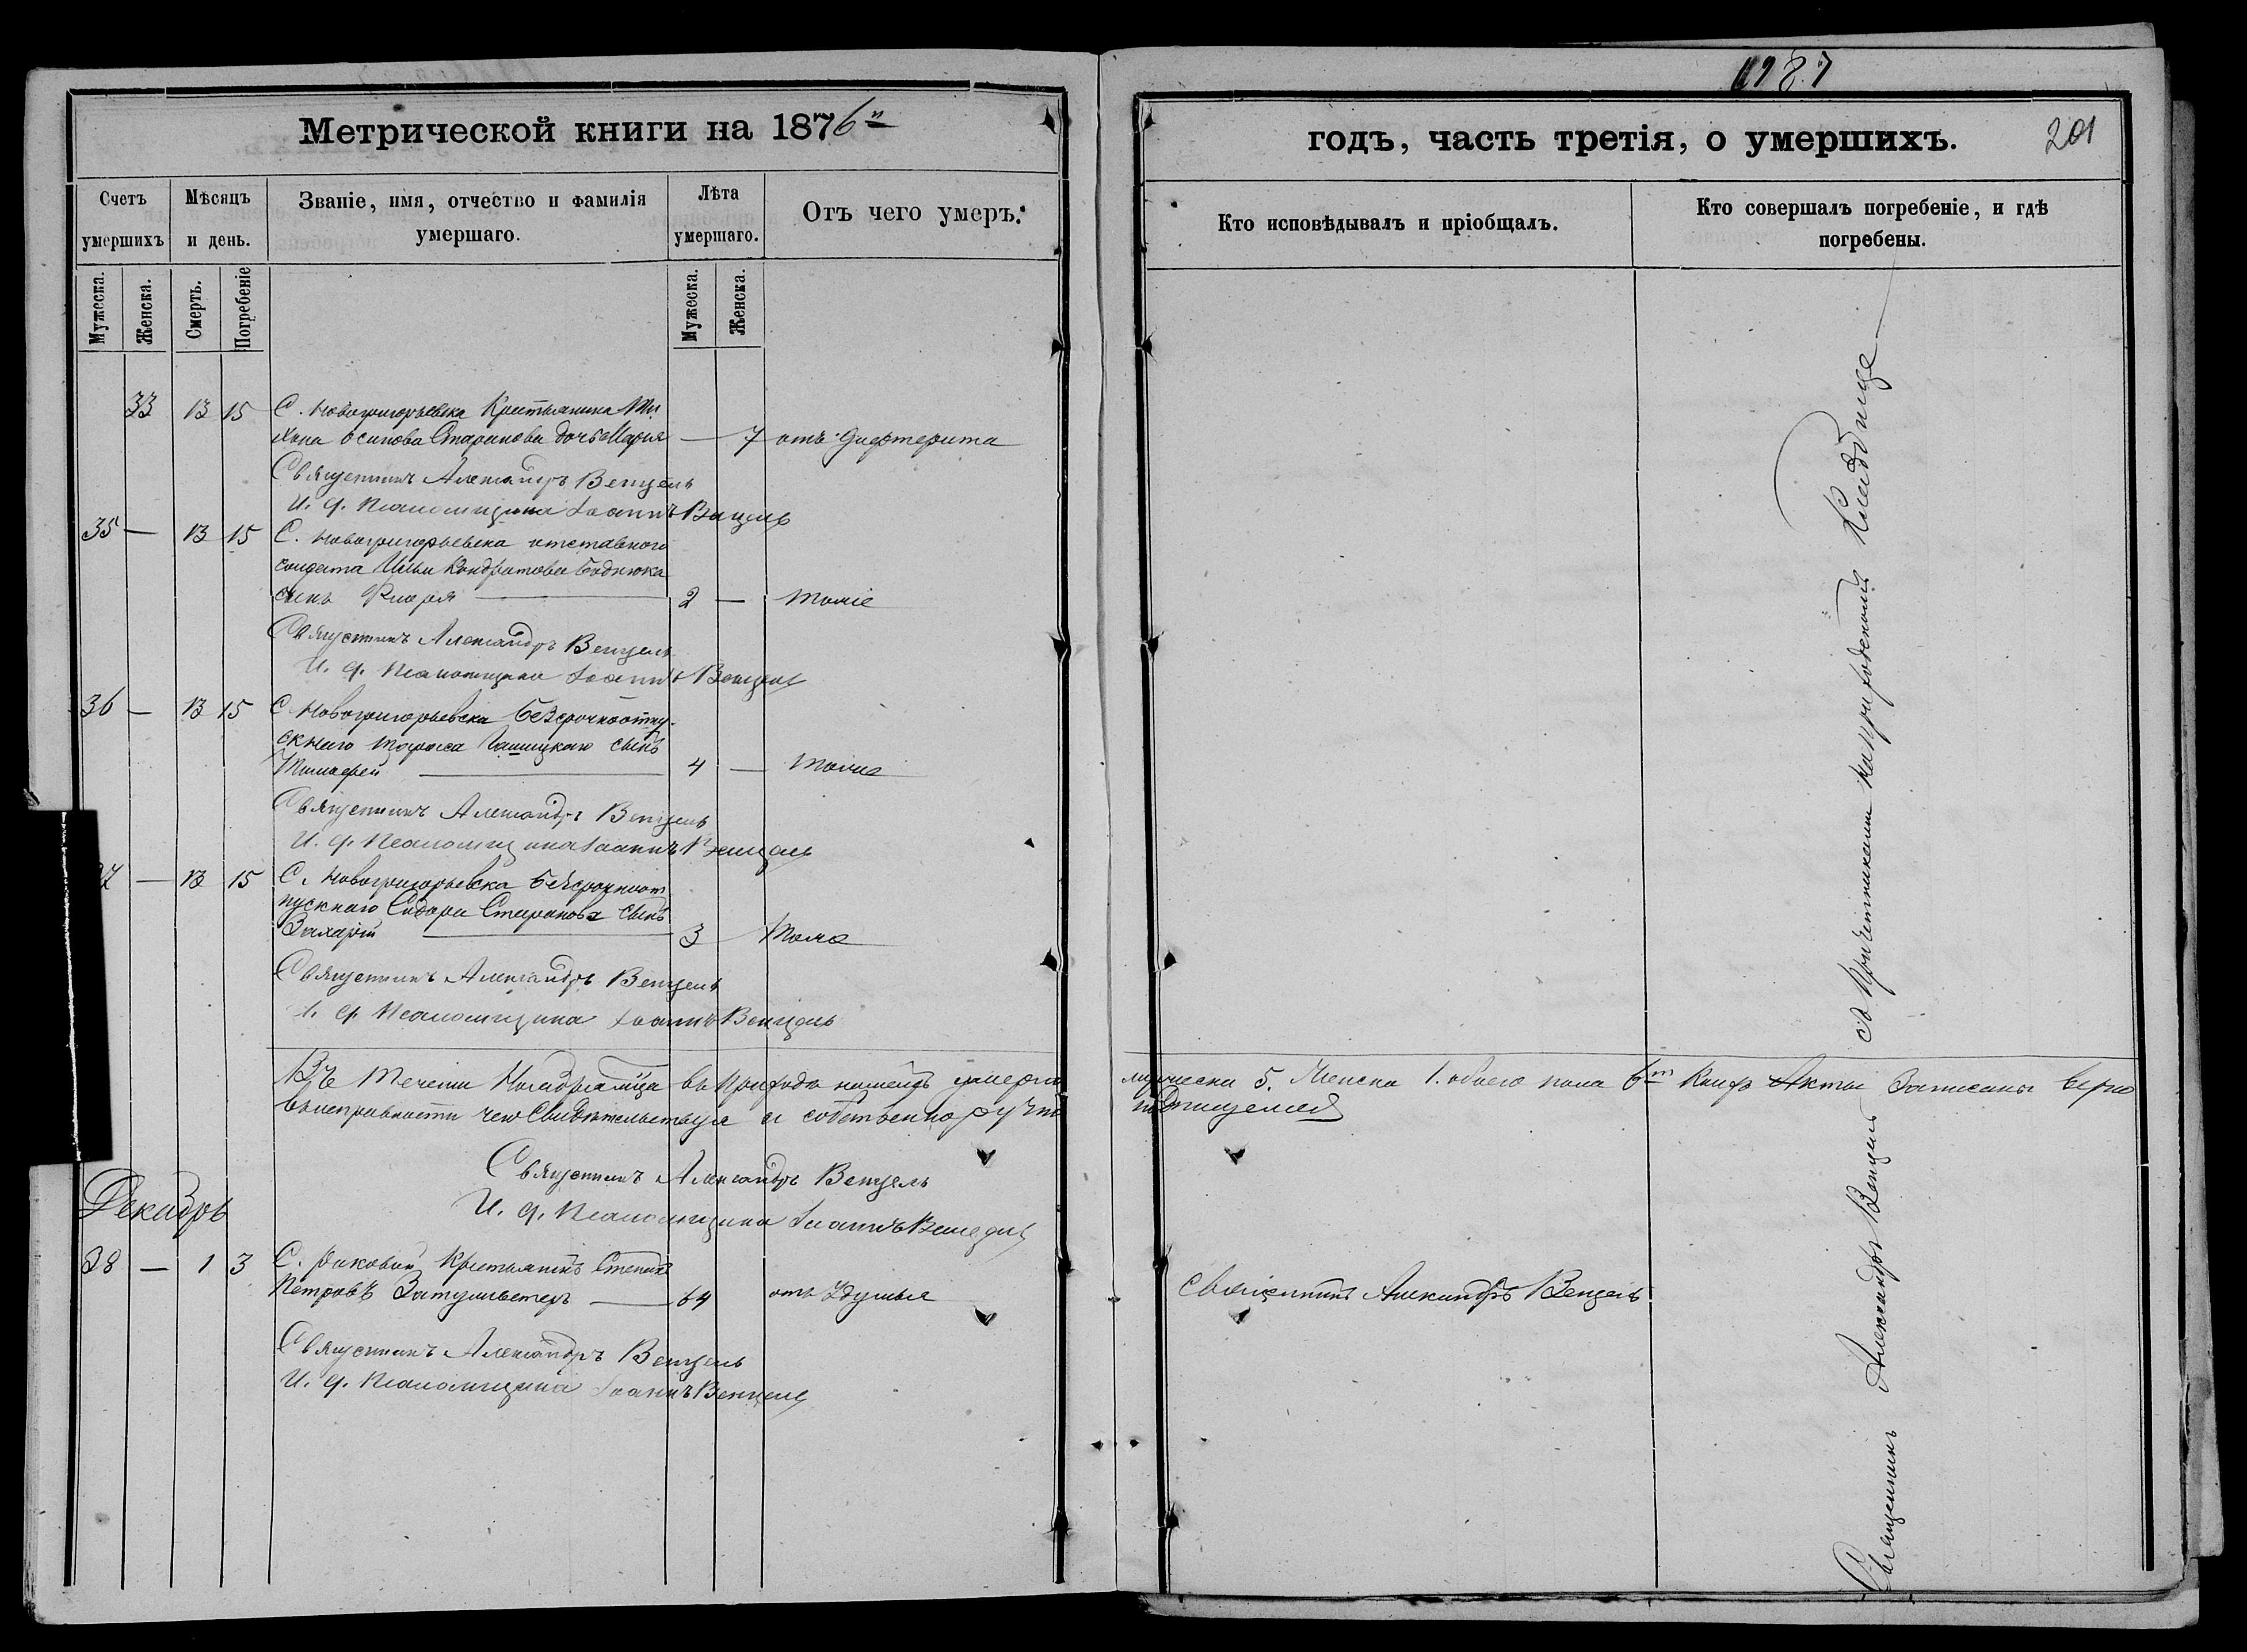 Метрической книги на 1876й
Счетъ умершихъ
Мѣсяцъ и день.
Званіе, имя, отчество и фамилія умершаго.
Лѣта умершаго.
Отъ чего умеръ.
Мужеска.
Женска.
Смерть.
Погребеніе
Мужеска.
Женска.
33 13 15 С. Новогригорьевка Крестьянина Ти
хона Осипова дочь Марія — 7 отъ дифтерита
Священникъ Александръ Венцель
И. д. Псаломщика Іоаннъ Венцель
35 — 13 15 С. Новогригорьевка отставного
солдата Ильи Кондратова Боднюка
сынъ — 2 — тоже
Священникъ Александръ Венцель
И. д. Псаломщика Іоаннъ Венцель
36 — 13 15 С Новогригорьевка безсрочноотпу-
скнаго Тараса сынъ
Тимофей — 4 — тоже
Священникъ Александръ Венцель
И. д. Псаломщика Іоаннъ Венцель
— 13 15 С. Новогригорьевка безсрочноот
пускнаго Сидора сынъ
Захарій — 3 тоже
Священникъ Александръ Венцель
И. д. Псаломщика Іоаннъ Венцель
Въ теченіи Ноября мѣца въ приходѣ нашемъ умерло
въ исправности чего свидѣтельствуя и собственноручно
Священникъ Александръ Венцель
И. д. Псаломщика Іоаннъ Венцель
Декабрь
38 — 1 3 С. Крестьянинъ Степанъ
Петровъ — 64 отъ удушья
Священникъ Александръ Венцель
И. д. Псаломщика Іоаннъ Венцель
годъ, часть третія, о умершихъ.
201
Кто исповѣдывалъ и пріобщалъ.
Кто совершалъ погребеніе, и гдѣ погребены.
мужеска 5. Женска 1. обоего пола 6ть Акты записаны верно
подписуемся
Священникъ Александръ Венцель
Священникъ Александръ Венцель съ причетниками на приходскомъ кладбище